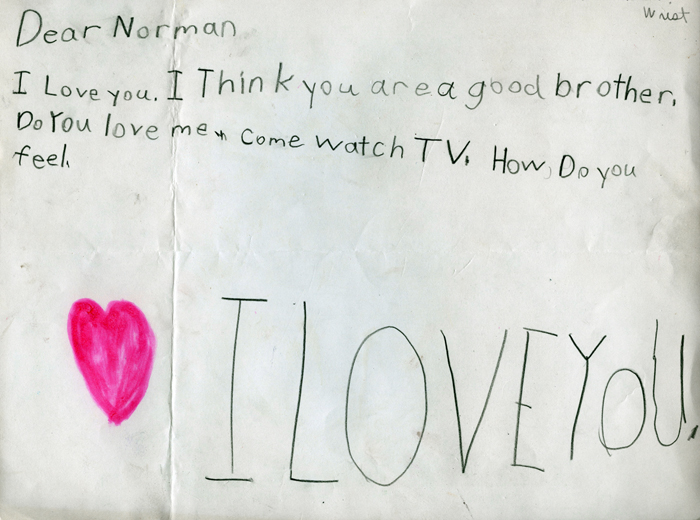 Wrist
Dear Norman
I Love you. I Think you are a good brother.
Do You love me. Come watch TV. How, Do you
feel.
I LOVE YOU.